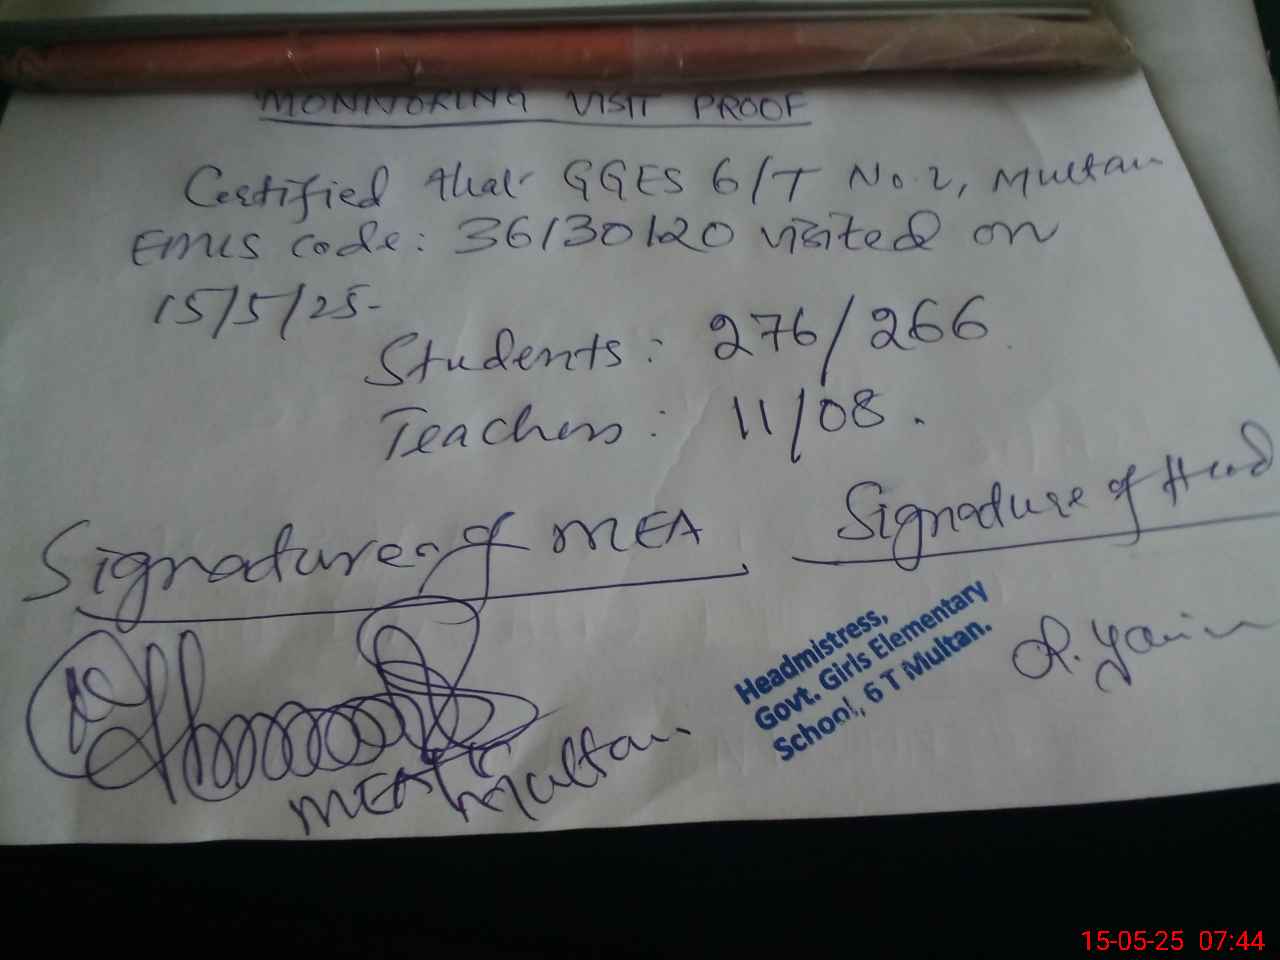 MONITORING VISIT PROOF
Certified that GGES 6/T No.2, Multan
EMIS code: 36130120 visited on
15/5/25-
Students: 276/266
Teachers: 11/08.
Signature of MEA
Signature of Head
Headmistress,
Govt. Girls Elementary
School, 6 T Multan.
MEA Multan
15-05-25 07:44